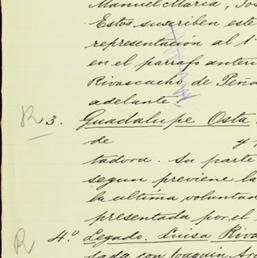 Manuel María, Jos
Estos suscriben este
representación al 1º
en el párrafo anteri
Rivascacho, de Peña
adelante.
R 3. Guadalupe Osta
de y
tadora. Su parte
segun previene la
la ultima voluntad
presentada por el
R 4.º Legado. Luisa Riva
sada con Joaquin